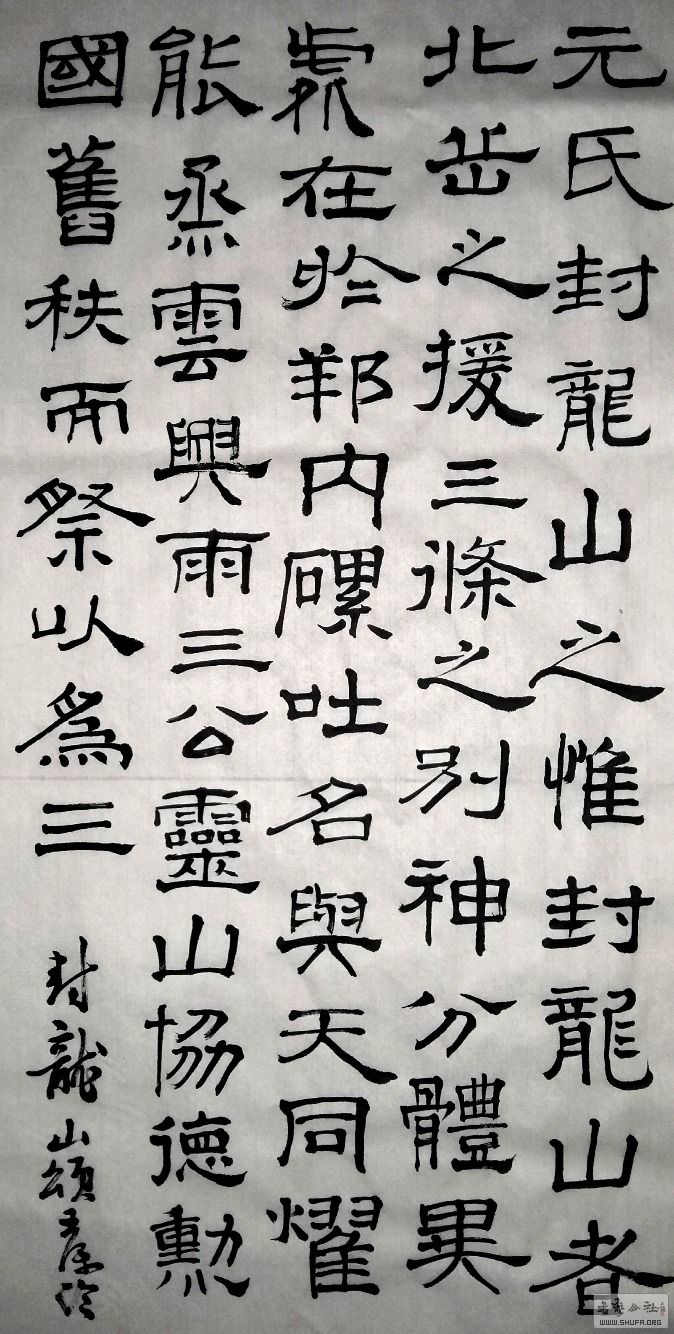 元氏封龍山之惟封龍山者
北岳之援三條之別神分體異
處在於邦内磥吐名與天同耀
能烝雲興雨三公靈山協德勳
國舊秩而祭以爲三
封龍山頌
WWW.SHUFA.ORG